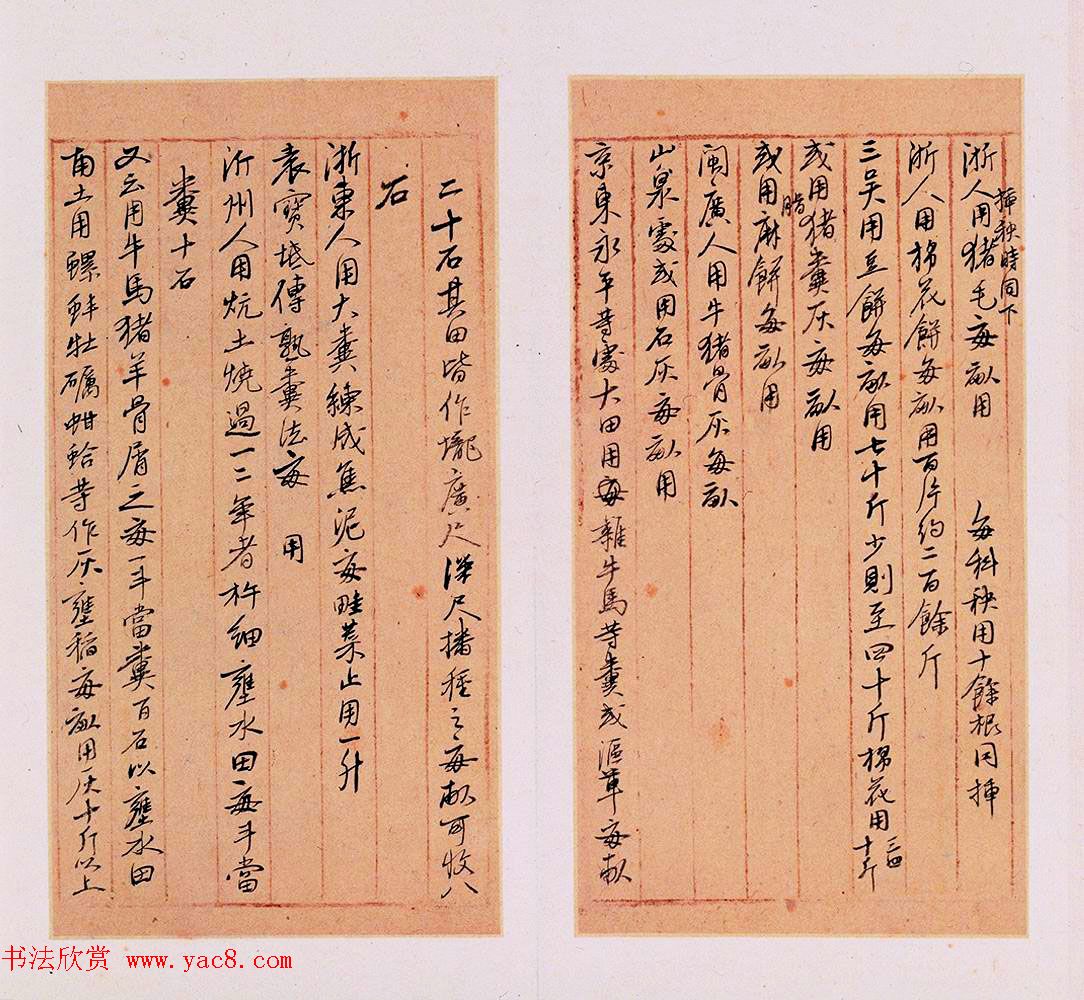 浙人用猪毛每畝用　每科秧用十餘根同挿
挿秧時同下
浙人用棉花餅每畝用百片約二百餘斤
三吴用豆餅每畝用七十斤少則至四十斤棉花用三四十斤
或用猪糞灰每畝用
或用麻餅每畝用
腊
閩廣人用牛猪骨灰每畝
山泉處或用石灰每畝用
京東永平等處大田用每雜牛馬等糞或漚草每畝
二十石其田皆作壠廣尺深尺播種之每畝可收八
石
浙東人用大糞練成焦泥每畦菜止用一升
袁寶坻傳熟糞法每　用
沂州人用炕土燒過一二年者杵細壅水田每斗當
糞十石
又云用牛馬猪羊骨屑之每一斗當糞百石以壅水田
南土用螺蚌牡礪蚶蛤等作灰壅稻每畝用灰十斤以上
书法欣赏 www.yac8.com